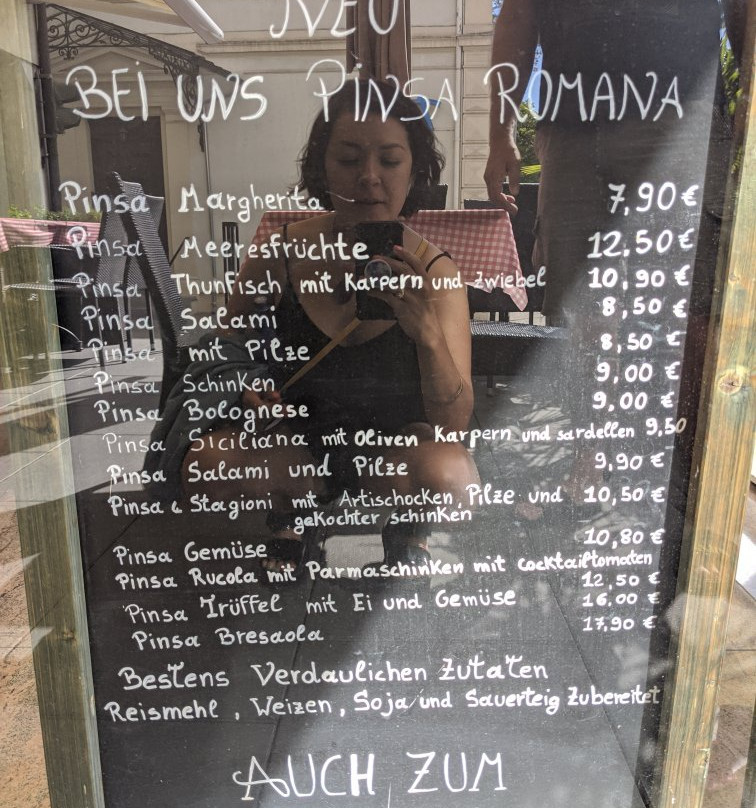 NEU
BEI UNS PINSA ROMANA
Pinsa Margherita 7,90 €
Pinsa Meeresfrüchte 12,50 €
Pinsa Thunfisch mit Karpern und zwiebel 10,90 €
Pinsa Salami 8,50 €
Pinsa mit Pilze 8,50 €
Pinsa Schinken 9,00 €
Pinsa Bolognese 9,00 €
Pinsa Siciliana mit Oliven Karpern und sardellen 9,50
Pinsa Salami und Pilze 9,90 €
Pinsa 4 Stagioni mit Artischocken, Pilze und 10,50 €
gekochter schinken
Pinsa Gemüse 10,80 €
Pinsa Rucola mit Parmaschinken mit cocktailtomaten
12,50 €
Pinsa Trüffel mit Ei und Gemüse 16.00 €
Pinsa Bresaola 17,90 €
Bestens Verdaulichen Zutaten
Reismehl, Weizen, Soja und Sauerteig Zubereitet
AUCH ZUM